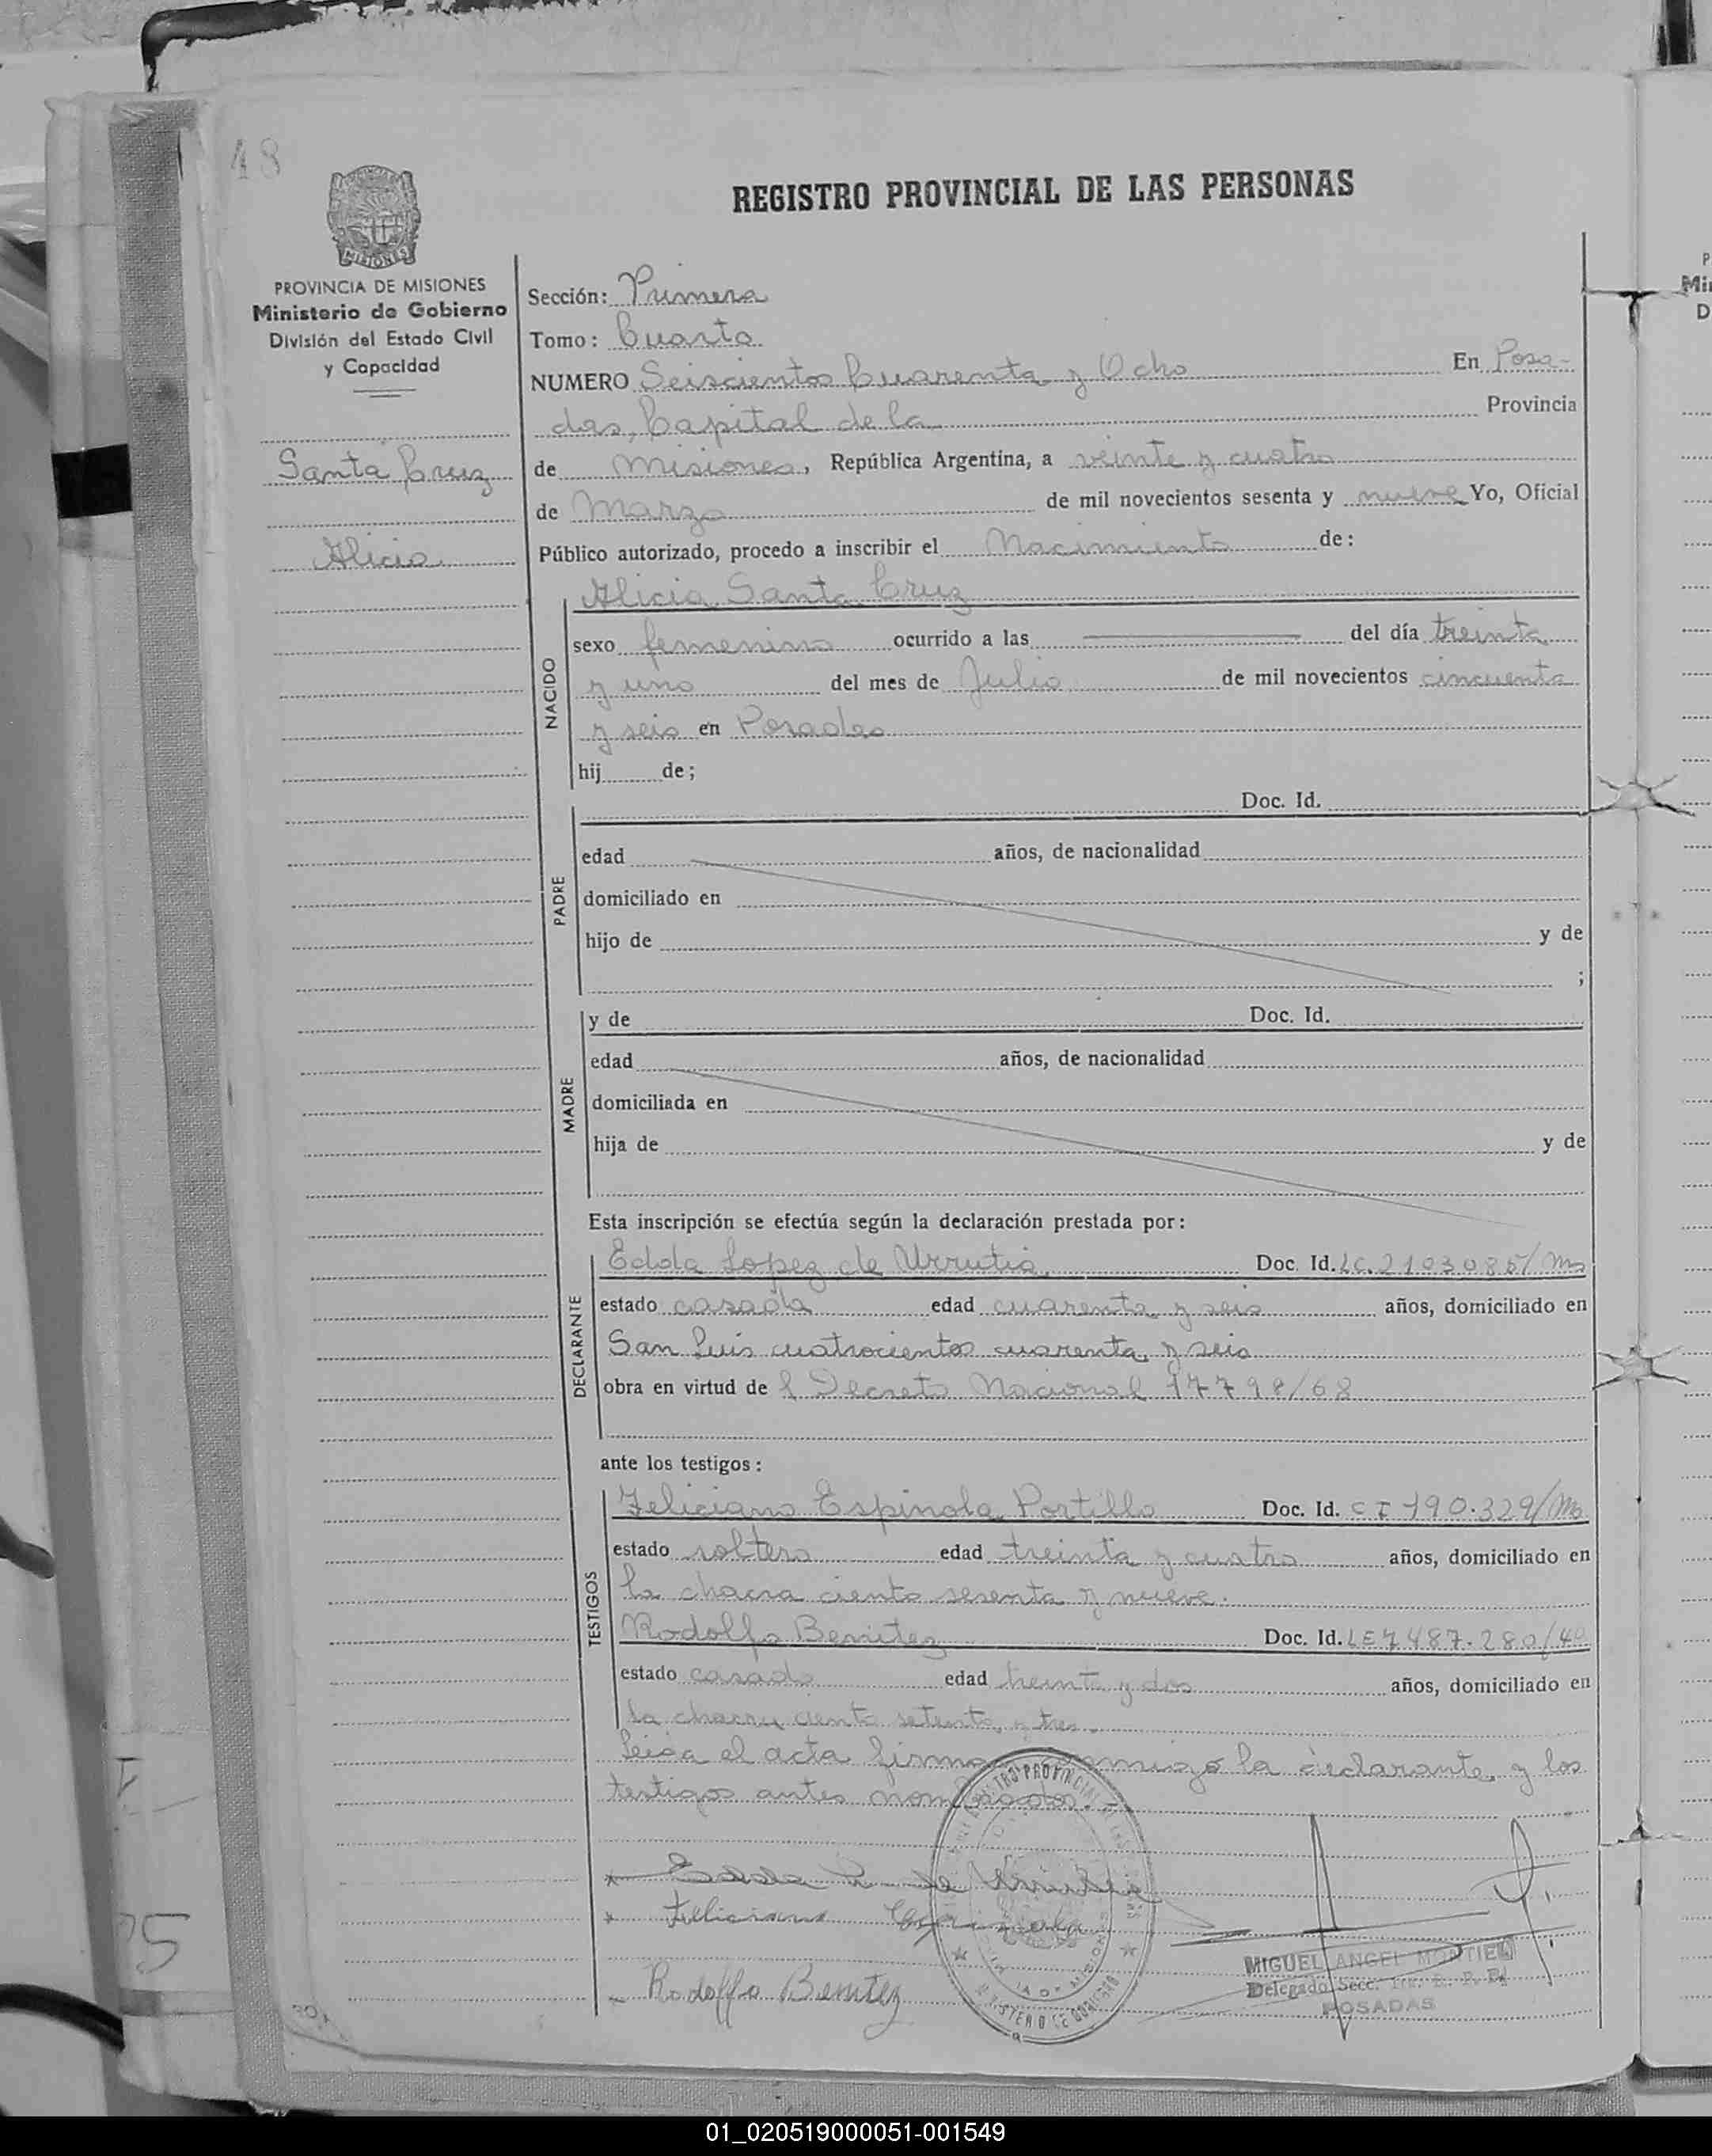 48
REGISTRO PROVINCIAL DE LAS PERSONAS
MISIONES
PROVINCIA DE MISIONES
Ministerio de Gobierno
División del Estado Civil
y Capacidad
Santa Cruz
Alicia
Sección: Primera
Tomo: Cuarto
NUMERO Seiscientos Cuarenta y Ocho En Posa-
das, Capital de la Provincia
de Misiones, República Argentina, a veinte y cuatro
de Marzo de mil novecientos sesenta y nueve Yo, Oficial
Público autorizado, procedo a inscribir el Nacimiento de:
NACIDO
Alicia Santa Cruz
sexo femenino ocurrido a las del día treinta
y uno del mes de Julio de mil novecientos cincuenta
y seis en Posadas
hij de;
PADRE
Doc. Id.
edad años, de nacionalidad
domiciliado en
hijo de y de
;
MADRE
y de Doc. Id.
edad años, de nacionalidad
domiciliada en
hija de y de
Esta inscripción se efectúa según la declaración prestada por:
DECLARANTE
Edda Lopez de Urrutia Doc. Id. LC. 2103085/Ms
estado casada edad cuarenta y seis años, domiciliado en
San Luis cuatrocientos cuarenta y seis
obra en virtud de l Decreto Nacional 17798/68
ante los testigos:
TESTIGOS
Feliciano Espinola Portillo Doc. Id. CI 190.329/Ms
estado soltero edad treinta y cuatro años, domiciliado en
la chacra ciento sesenta y nueve.
Rodolfo Benitez Doc. Id. LE 7.487.280/40
estado casado edad treinta y dos años, domiciliado en
la chacra ciento setenta y tres.
Leida el acta firma conmigo la declarante y los
testigos antes nombrados.
Edda L. de Urrutia
Feliciano Espinola
Rodolfo Benitez
MIGUEL ANGEL MONTIEL
Delegado Secc. R. P. P.
POSADAS
01_020519000051-001549